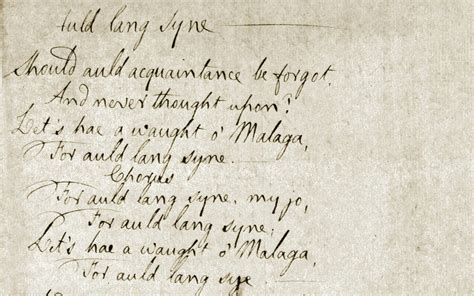 Auld lang syne
Should auld acquaintance be forgot,
And never thought upon?
Let's hae a waught o' Malaga,
For auld lang syne.
Chorus
For auld lang syne, my jo,
For auld lang syne,
Let's hae a waught o' Malaga,
For auld lang syne